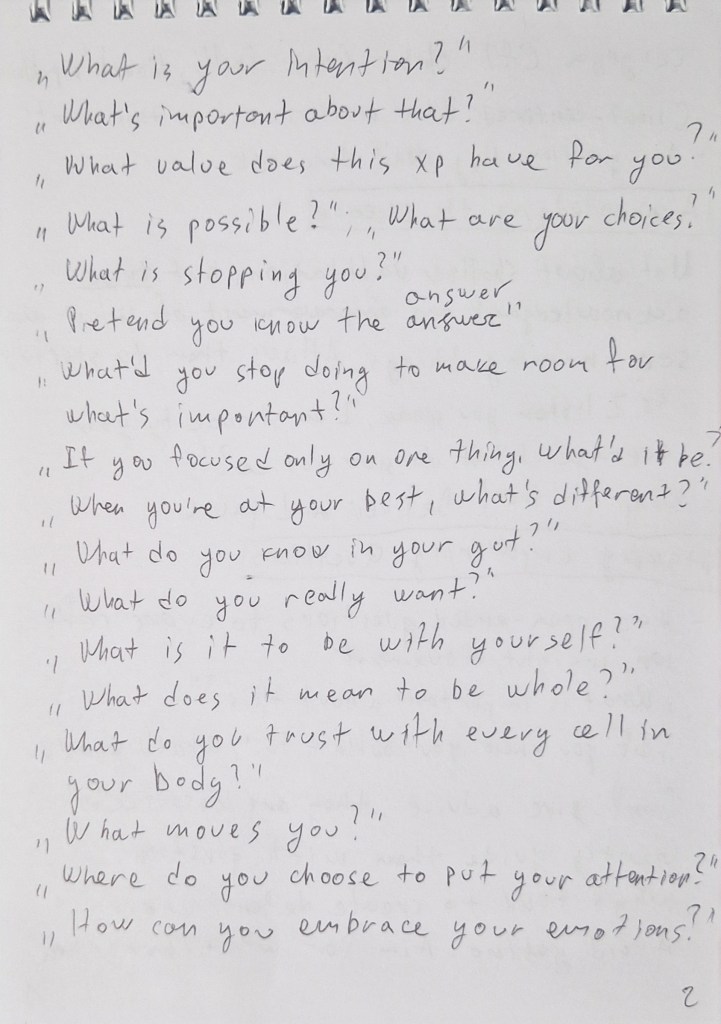 „What is your intention?"
„What's important about that?"
„What value does this xp have for you?"
„What is possible?"; „What are your choices?"
„What is stopping you?"
answer
„Pretend you know the answer"
„What'd you stop doing to make room for
what's important?"
„If you focused only on one thing, what'd it be?
„When you're at your best, what's different?"
„What do you know in your gut?"
„What do you really want?"
„What is it to be with yourself?"
„What does it mean to be whole?"
„What do you trust with every cell in
your body?"
„What moves you?"
„Where do you choose to put your attention?"
„How can you embrace your emotions?"
2